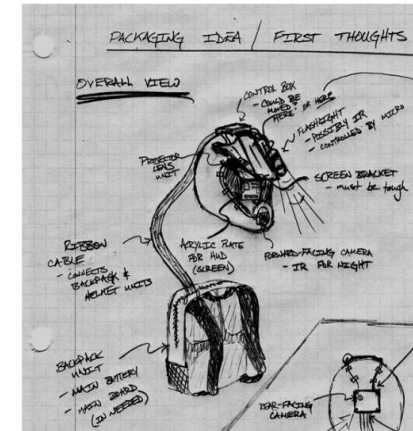 PACKAGING IDEA / FIRST THOUGHTS
OVERALL VIEW
CONTROL BOX
- COULD BE
MOVED
HERE? OR HERE
FLASHLIGHT
- POSSIBLY IR
- CONTROLLED BY MICRO
PROJECTOR
LENS
UNIT
SCREEN BRACKET
- must be tough
ACRYLIC PLATE
FOR HUD
(SCREEN)
FORWARD-FACING CAMERA
- IR FOR NIGHT
RIBBON
CABLE
- CONNECTS
BACKPACK &
HELMET UNITS
BACKPACK
UNIT
- MAIN BATTERY
- MAIN BOARD
(IF NEEDED)
REAR-FACING
CAMERA